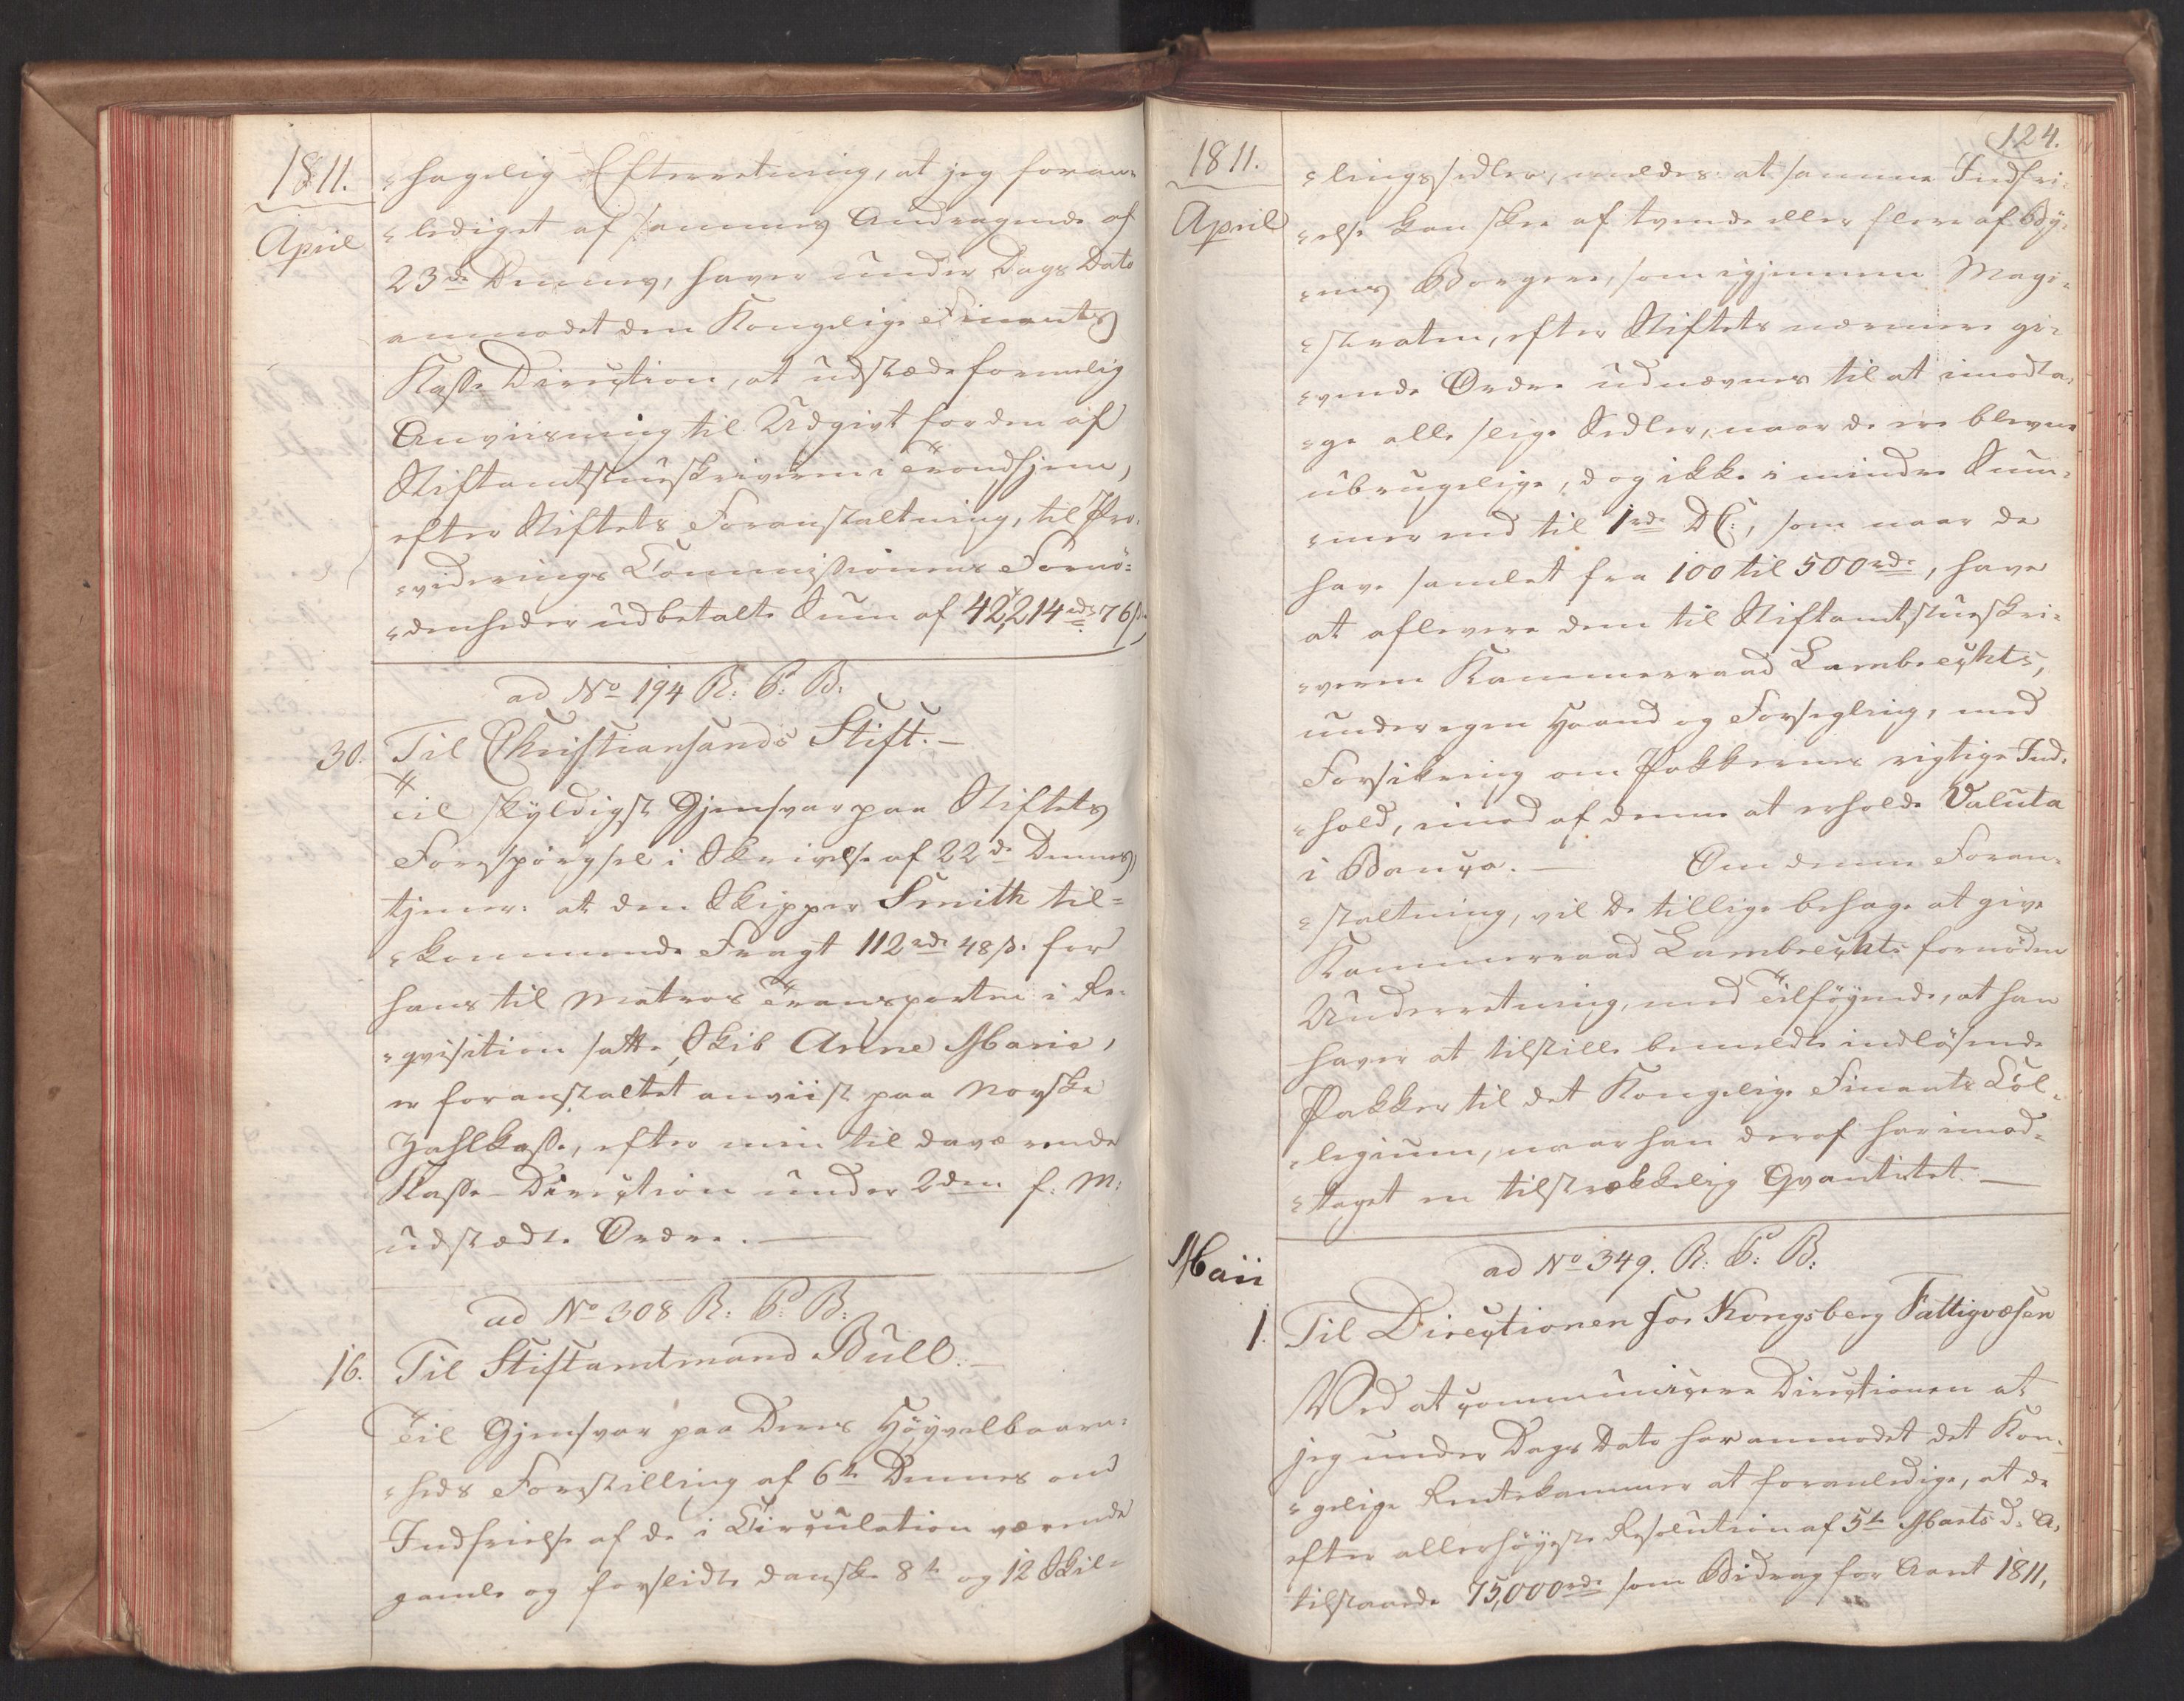 1811.
April
hagelig Efterretning, at jeg foran-
lediget af sammes Andragende af
23de Dennes, haver under Dags Dato
anmodet den Kongelige Finants
Kasse Direction, at udstæde formelig
Anviisning til Udgivt for den af
Stiftamtstueskriveren i Trondhjem,
efter Stiftets Foranstaltning, til Pro-
viderings Commissionens Fornö-
denheder udbetalte Sum af 42,214 rd 76 s.
ad No 194 R: C: B:
30. Til Christiansands Stift. —
Til skyldigst Gjensvar paa Stiftets
Forespörgsel i Skrivelse af 22de Dennes,
tjener: at den Skipper Smith til-
kommende Fragt 112 rd 48 s. for
hans til Matros Transporten i Re-
qvisition satte Skib Anne Marie,
er foranstaltet anviist paa Norske
Zahlkasse, efter min til daværende
Kasse-Direction under 2den f: M:
udstædte Ordre. —
ad No 308 R: C: B:
16. Til Stiftamtmand Bull. —
Til Gjensvar paa Deres Höyvelbaaren-
heds Forestilling af 6te Dennes om
Indfrielse af de i Circulation værende
gamle og forslidte danske 8te og 12 Skil-
124.
1811.
April
lingssedler, meldes: at samme Indfri-
else kan skee af tvende eller flere af By-
ens Borgere, som igjennem Magi-
straten, efter Stiftets nærmere gi-
vende Ordre udnævnes til at imodta-
ge alle slige Sedler, naar de ere blevne
ubrugelige, dog ikke i mindre Sum-
mer end til 1 rd DC:, som naar de
have samlet fra 100 til 500 rd, have
at aflevere dem til Stiftamtstueskri-
veren Kammerraad Lambrechts,
under egen Haand og Forsegling, med
Forsikring om Pakkernes rigtige Ind-
hold, imod af denne at erholde Valuta
i Banco. — Om denne Foran-
staltning, vil De tillige behage at give
Kammerraad Lambrechts fornöden
Underretning, med Tilföyende, at han
haver at tilstille bemeldte indlösende
Pakker til det Kongelige Finants Col-
legium, naar han deraf har imod-
taget en tilstrækkelig Qvantitet. —
ad No 349. R: C: B:
Maii
1. Til Directionen for Kongsberg Fattigvæsen
Ved at communicere Directionen at
jeg under Dags Dato har anmodet det Kon-
gelige Rentekammer at foranledige, at de
efter allerhöyeste Resolution af 5te Marts d. A.
tilstaaede 75,000 rd som Bidrag for Aaret 1811,